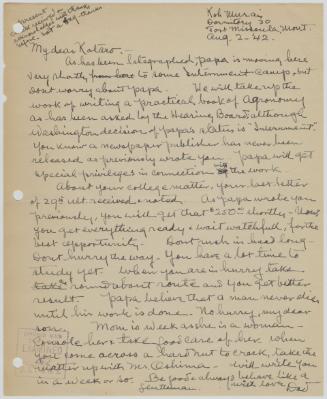 Rob Murai
Dormitory 30
Fort Missoula, Mont.
Aug. 2-42.
My dear Kataro:-
As has been telegraphed, papa is moving here
very shortly from here to some Internment Camp, but
don't worry about papa. He will take up the
work of writing a practical book of Agronomy
as has been asked by the Hearing Board although
Washington decision of papa's status is "Internment".
You know a newspaper publisher has never been
released as previously wrote you. papa will get
special privileges in connection with the work.
About your college matter, your last letter
of 29th ult received & noted. As papa wrote you
previously, you will get that $250.00 shortly-
you get everything ready & wait watchfull, for the
best opportunity. Don't rush in head long-
Don't hurry the way. You have a lot time to
study yet. When you are in hurry, take
take round about route and you get better
result. Papa believe that a man never dies
until his work is done. No hurry, my dear
sonny. Mom is weak as she is a woman-
Console her & take good care of her. When
you come across a hard nut to crack, take the
matter up with Mr. Oshima. Will write you
in a week or so. Be good & always behave like a
gentleman. with love, Dad